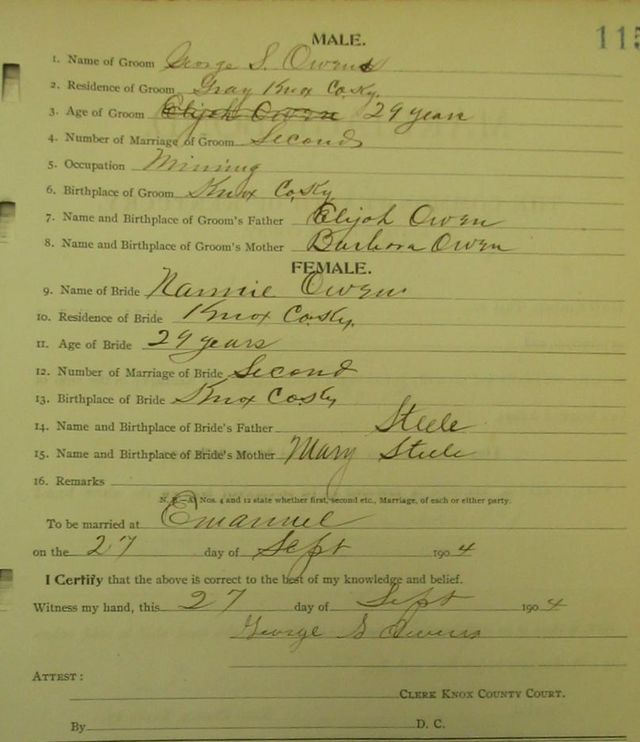 115
MALE.
1. Name of Groom George S. Owens
2. Residence of Groom Gray Knox Co. Ky.
3. Age of Groom Elijah Owen 29 years
4. Number of Marriage of Groom Second
5. Occupation Mining
6. Birthplace of Groom Knox Co. Ky
7. Name and Birthplace of Groom's Father Elijah Owen
8. Name and Birthplace of Groom's Mother Barbara Owen
FEMALE.
9. Name of Bride Nannie Owen
10. Residence of Bride Knox Co. Ky.
11. Age of Bride 29 years
12. Number of Marriage of Bride Second
13. Birthplace of Bride Knox Co Ky
14. Name and Birthplace of Bride's Father Steele
15. Name and Birthplace of Bride's Mother Mary Steele
16. Remarks
N. B.—At Nos. 4 and 12 state whether first, second etc., Marriage, of each or either party.
To be married at Emanuel
on the 27 day of Sept 1904
I Certify that the above is correct to the best of my knowledge and belief.
Witness my hand, this 27 day of Sept 1904
George S Owens
ATTEST:
CLERK KNOX COUNTY COURT.
By D. C.